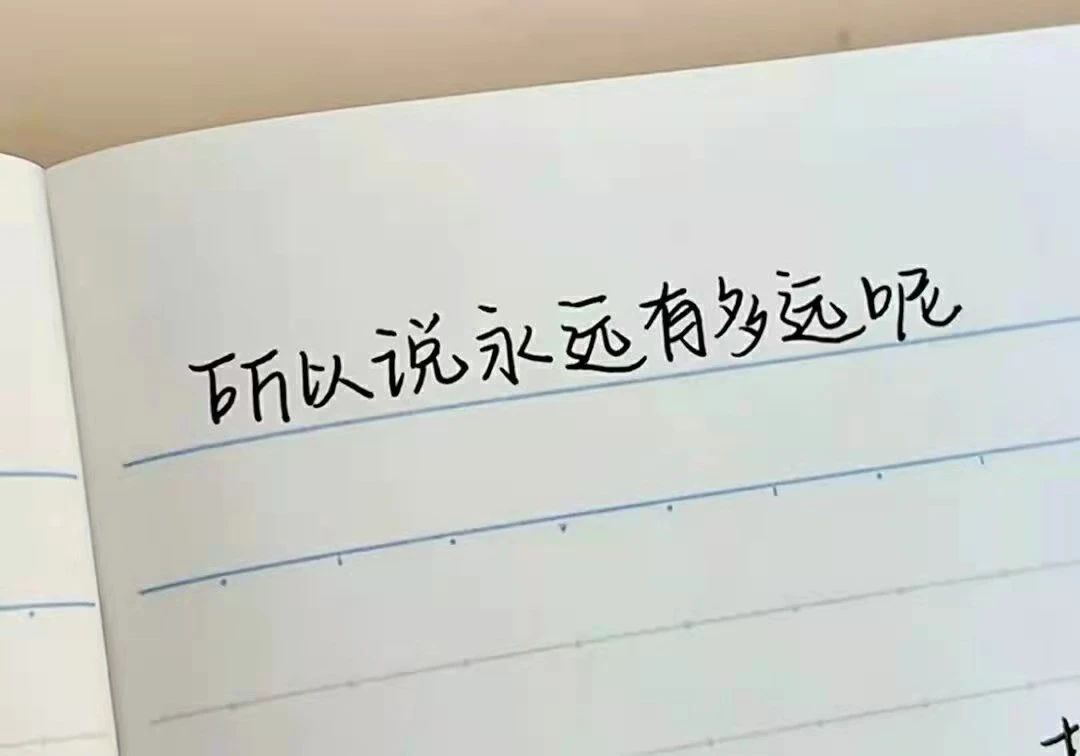 所以说永远有多远呢